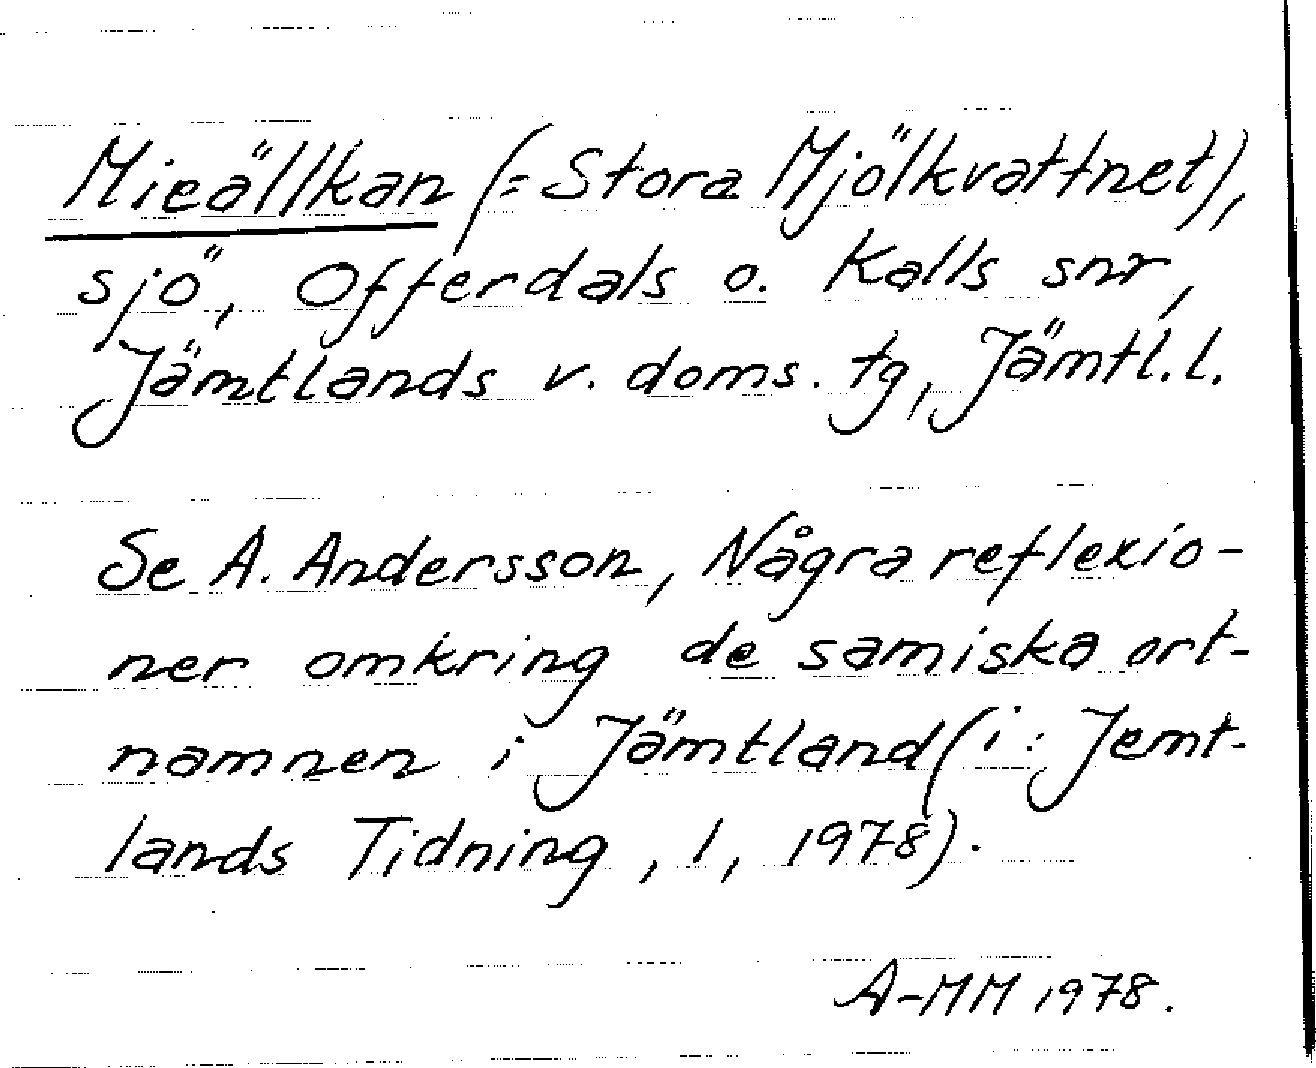 Mieällkan (= Stora Mjölkvattnet),
sjö, Offerdals o. Kalls snr,
Jämtlands v. doms. tg, Jämtl. l.
Se A. Andersson, Några reflexio-
ner omkring de samiska ort-
namnen i Jämtland (i: Jemt-
lands Tidning, 1, 1978).
A-MM 1978.